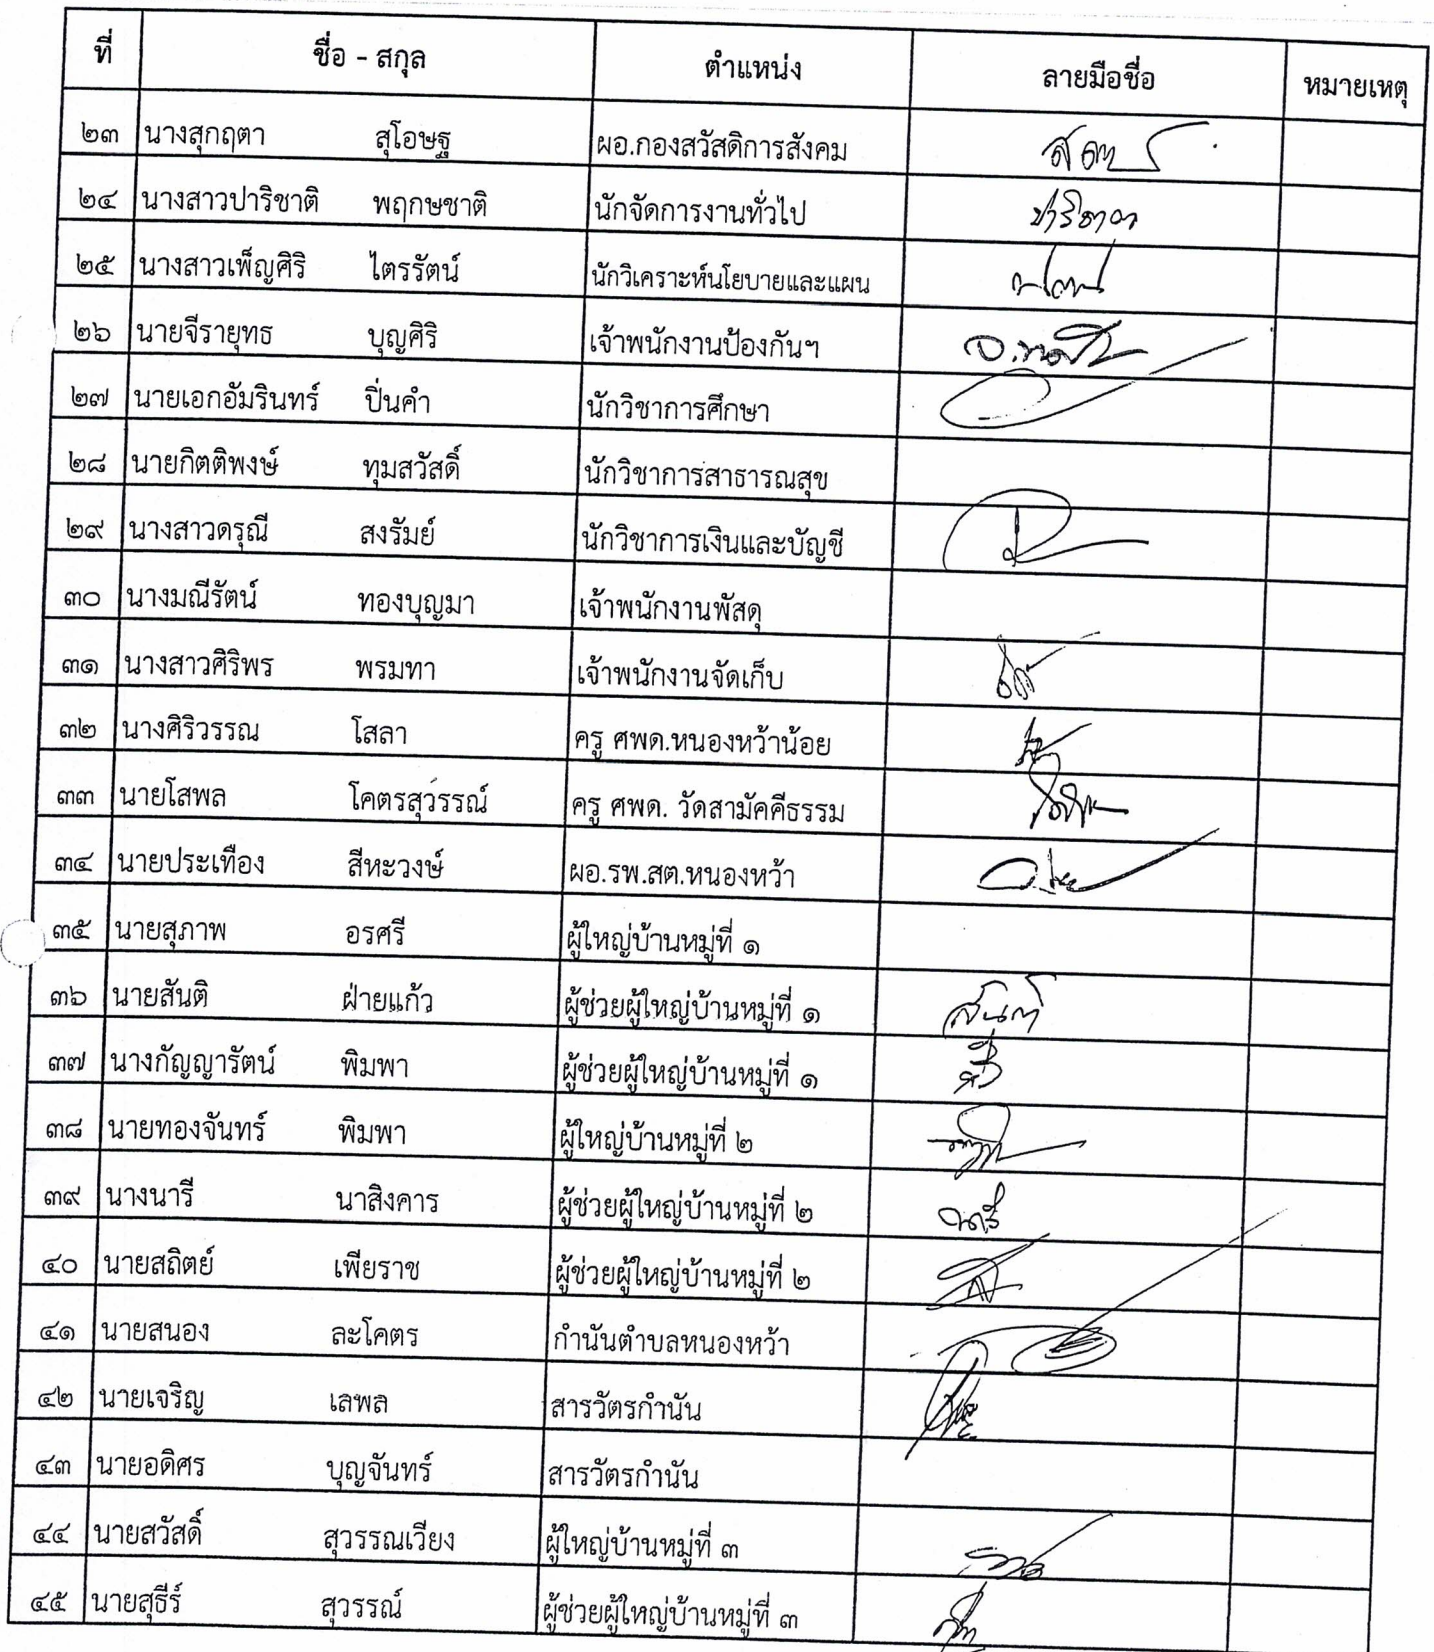 ที่ ชื่อ - สกุล ตำแหน่ง ลายมือชื่อ หมายเหตุ
๒๓ นางสุกฤตา สุโอษฐ ผอ.กองสวัสดิการสังคม
๒๔ นางสาวปาริชาติ พฤกษชาติ นักจัดการงานทั่วไป
๒๕ นางสาวเพ็ญศิริ ไตรรัตน์ นักวิเคราะห์นโยบายและแผน
๒๖ นายจีรายุทธ บุญศิริ เจ้าพนักงานป้องกันฯ
๒๗ นายเอกอัมรินทร์ ปิ่นคำ นักวิชาการศึกษา
๒๘ นายกิตติพงษ์ ทุมสวัสดิ์ นักวิชาการสาธารณสุข
๒๙ นางสาวดรุณี สงรัมย์ นักวิชาการเงินและบัญชี
๓๐ นางมณีรัตน์ ทองบุญมา เจ้าพนักงานพัสดุ
๓๑ นางสาวศิริพร พรมทา เจ้าพนักงานจัดเก็บ
๓๒ นางศิริวรรณ โสลา ครู ศพด.หนองหว้าน้อย
๓๓ นายโสพล โคตรสุวรรณ์ ครู ศพด. วัดสามัคคีธรรม
๓๔ นายประเทือง สีหะวงษ์ ผอ.รพ.สต.หนองหว้า
๓๕ นายสุภาพ อรศรี ผู้ใหญ่บ้านหมู่ที่ ๑
๓๖ นายสันติ ฝ่ายแก้ว ผู้ช่วยผู้ใหญ่บ้านหมู่ที่ ๑ สันติ
๓๗ นางกัญญารัตน์ พิมพา ผู้ช่วยผู้ใหญ่บ้านหมู่ที่ ๑
๓๘ นายทองจันทร์ พิมพา ผู้ใหญ่บ้านหมู่ที่ ๒
๓๙ นางนารี นาสิงคาร ผู้ช่วยผู้ใหญ่บ้านหมู่ที่ ๒ นารี
๔๐ นายสถิตย์ เพียราช ผู้ช่วยผู้ใหญ่บ้านหมู่ที่ ๒
๔๑ นายสนอง ละโคตร กำนันตำบลหนองหว้า
๔๒ นายเจริญ เลพล สารวัตรกำนัน
๔๓ นายอดิศร บุญจันทร์ สารวัตรกำนัน
๔๔ นายสวัสดิ์ สุวรรณเวียง ผู้ใหญ่บ้านหมู่ที่ ๓
๔๕ นายสุธีร์ สุวรรณ์ ผู้ช่วยผู้ใหญ่บ้านหมู่ที่ ๓